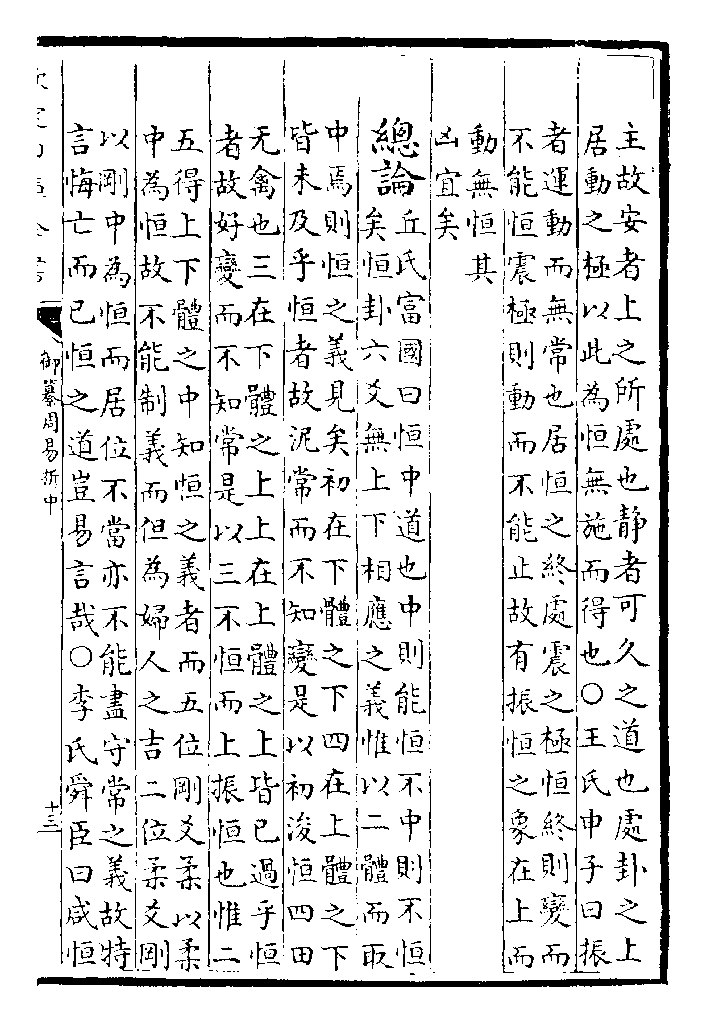 主故安者上之所處也静者可久之道也處卦之上
居動之極以此為恒無施而得也○王氏申子曰振
者運動而無常也居恒之終處震之極恒終則變而
不能恒震極則動而不能止故有振恒之象在上而
動無恒其
凶宜矣
總論丘氏富國曰恒中道也中則能恒不中則不恒
矣恒卦六爻無上下相應之義惟以二體而取
中焉則恒之義見矣初在下體之下四在上體之下
皆未及乎恒者故泥常而不知變是以初浚恒四田
无禽也三在下體之上上在上體之上皆已過乎恒
者故好變而不知常是以三不恒而上振恒也惟二
五得上下體之中知恒之義者而五位剛爻柔以柔
中為恒故不能制義而但為婦人之吉二位柔爻剛
以剛中為恒而居位不當亦不能盡守常之義故特
言悔亡而已恒之道豈易言哉○李氏舜臣曰咸恒
欽定四庫全書
御纂周易折中
十三